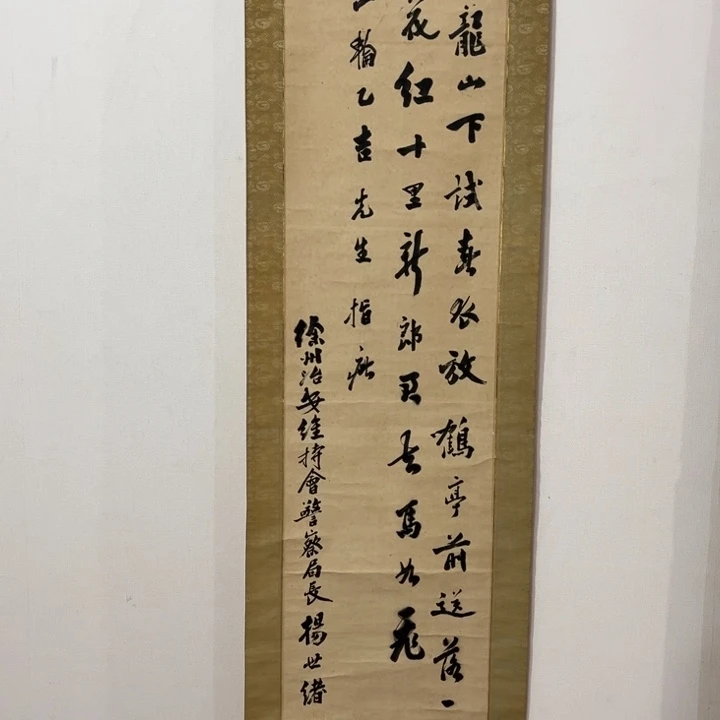 龍山下試春衣放鶴亭前送落一
花紅十里新郎君去馬如飛
輪乙吉先生指疵
徐州治安維持會警察局長楊世緒